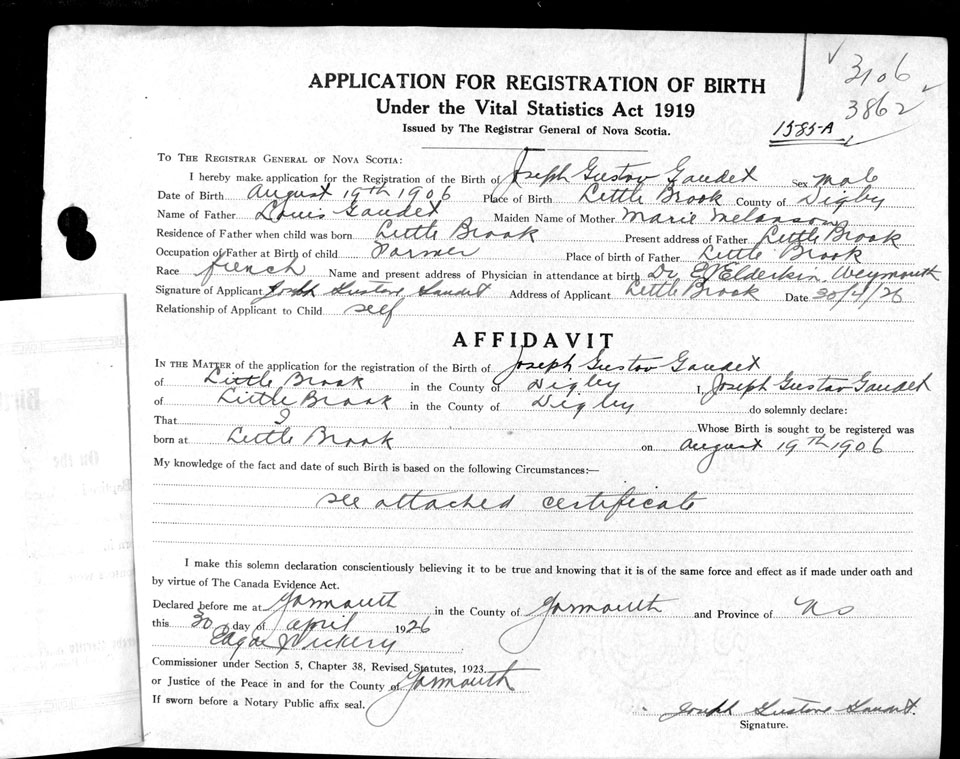 3106
3862
1585-A
APPLICATION FOR REGISTRATION OF BIRTH
Under the Vital Statistics Act 1919
Issued by The Registrar General of Nova Scotia.
TO THE REGISTRAR GENERAL OF NOVA SCOTIA:
I hereby make application for the Registration of the Birth of Joseph Gustav Gaudet Sex Male
Date of Birth August 19th 1906 Place of Birth Little Brook County of Digby
Name of Father Louis Gaudet Maiden Name of Mother Marie Melanson
Residence of Father when child was born Little Brook Present address of Father Little Brook
Occupation of Father at Birth of child Farmer Place of birth of Father Little Brook
Race french Name and present address of Physician in attendance at birth Dr Elderkin Weymouth
Signature of Applicant Joseph Gustave Gaudet Address of Applicant Little Brook Date 30/4/26
Relationship of Applicant to Child self
AFFIDAVIT
IN THE MATTER of the application for the registration of the Birth of Joseph Gustav Gaudet
of Little Brook in the County of Digby I, Joseph Gustav Gaudet
of Little Brook in the County of Digby do solemnly declare:
That I Whose Birth is sought to be registered was
born at Little Brook on August 19th 1906
My knowledge of the fact and date of such Birth is based on the following Circumstances:—
see attached certificate
I make this solemn declaration conscientiously believing it to be true and knowing that it is of the same force and effect as if made under oath and
by virtue of The Canada Evidence Act.
Declared before me at Yarmouth in the County of Yarmouth and Province of NS
this 30 day of april 1926
Edgar Vickery
Commissioner under Section 5, Chapter 38, Revised Statutes, 1923.
or Justice of the Peace in and for the County of Yarmouth
If sworn before a Notary Public affix seal.
Joseph Gustave Gaudet.
Signature.